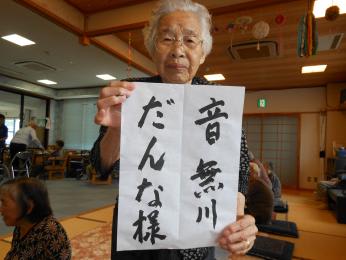 音無川
だんな様